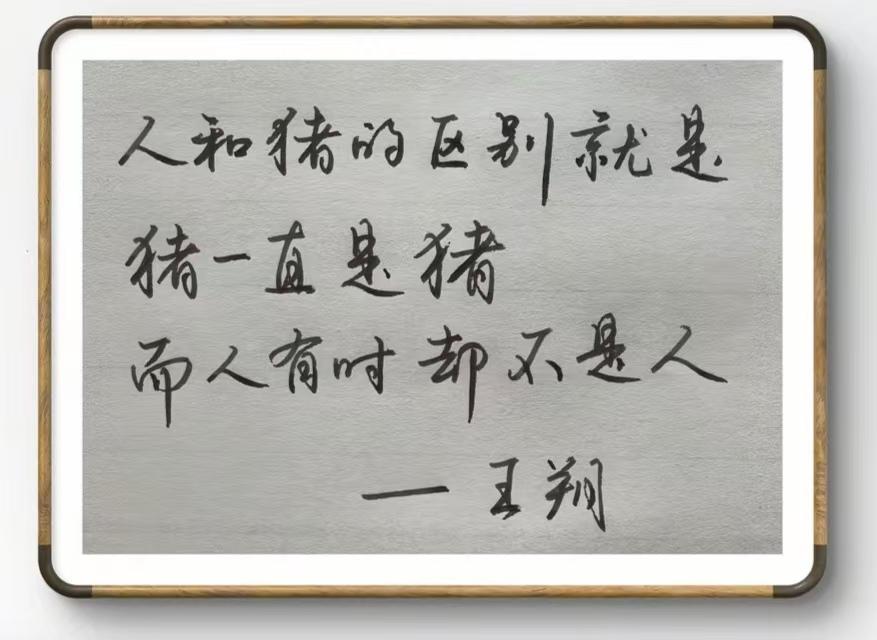 人和猪的区别就是
猪一直是猪
而人有时却不是人
— 王朔